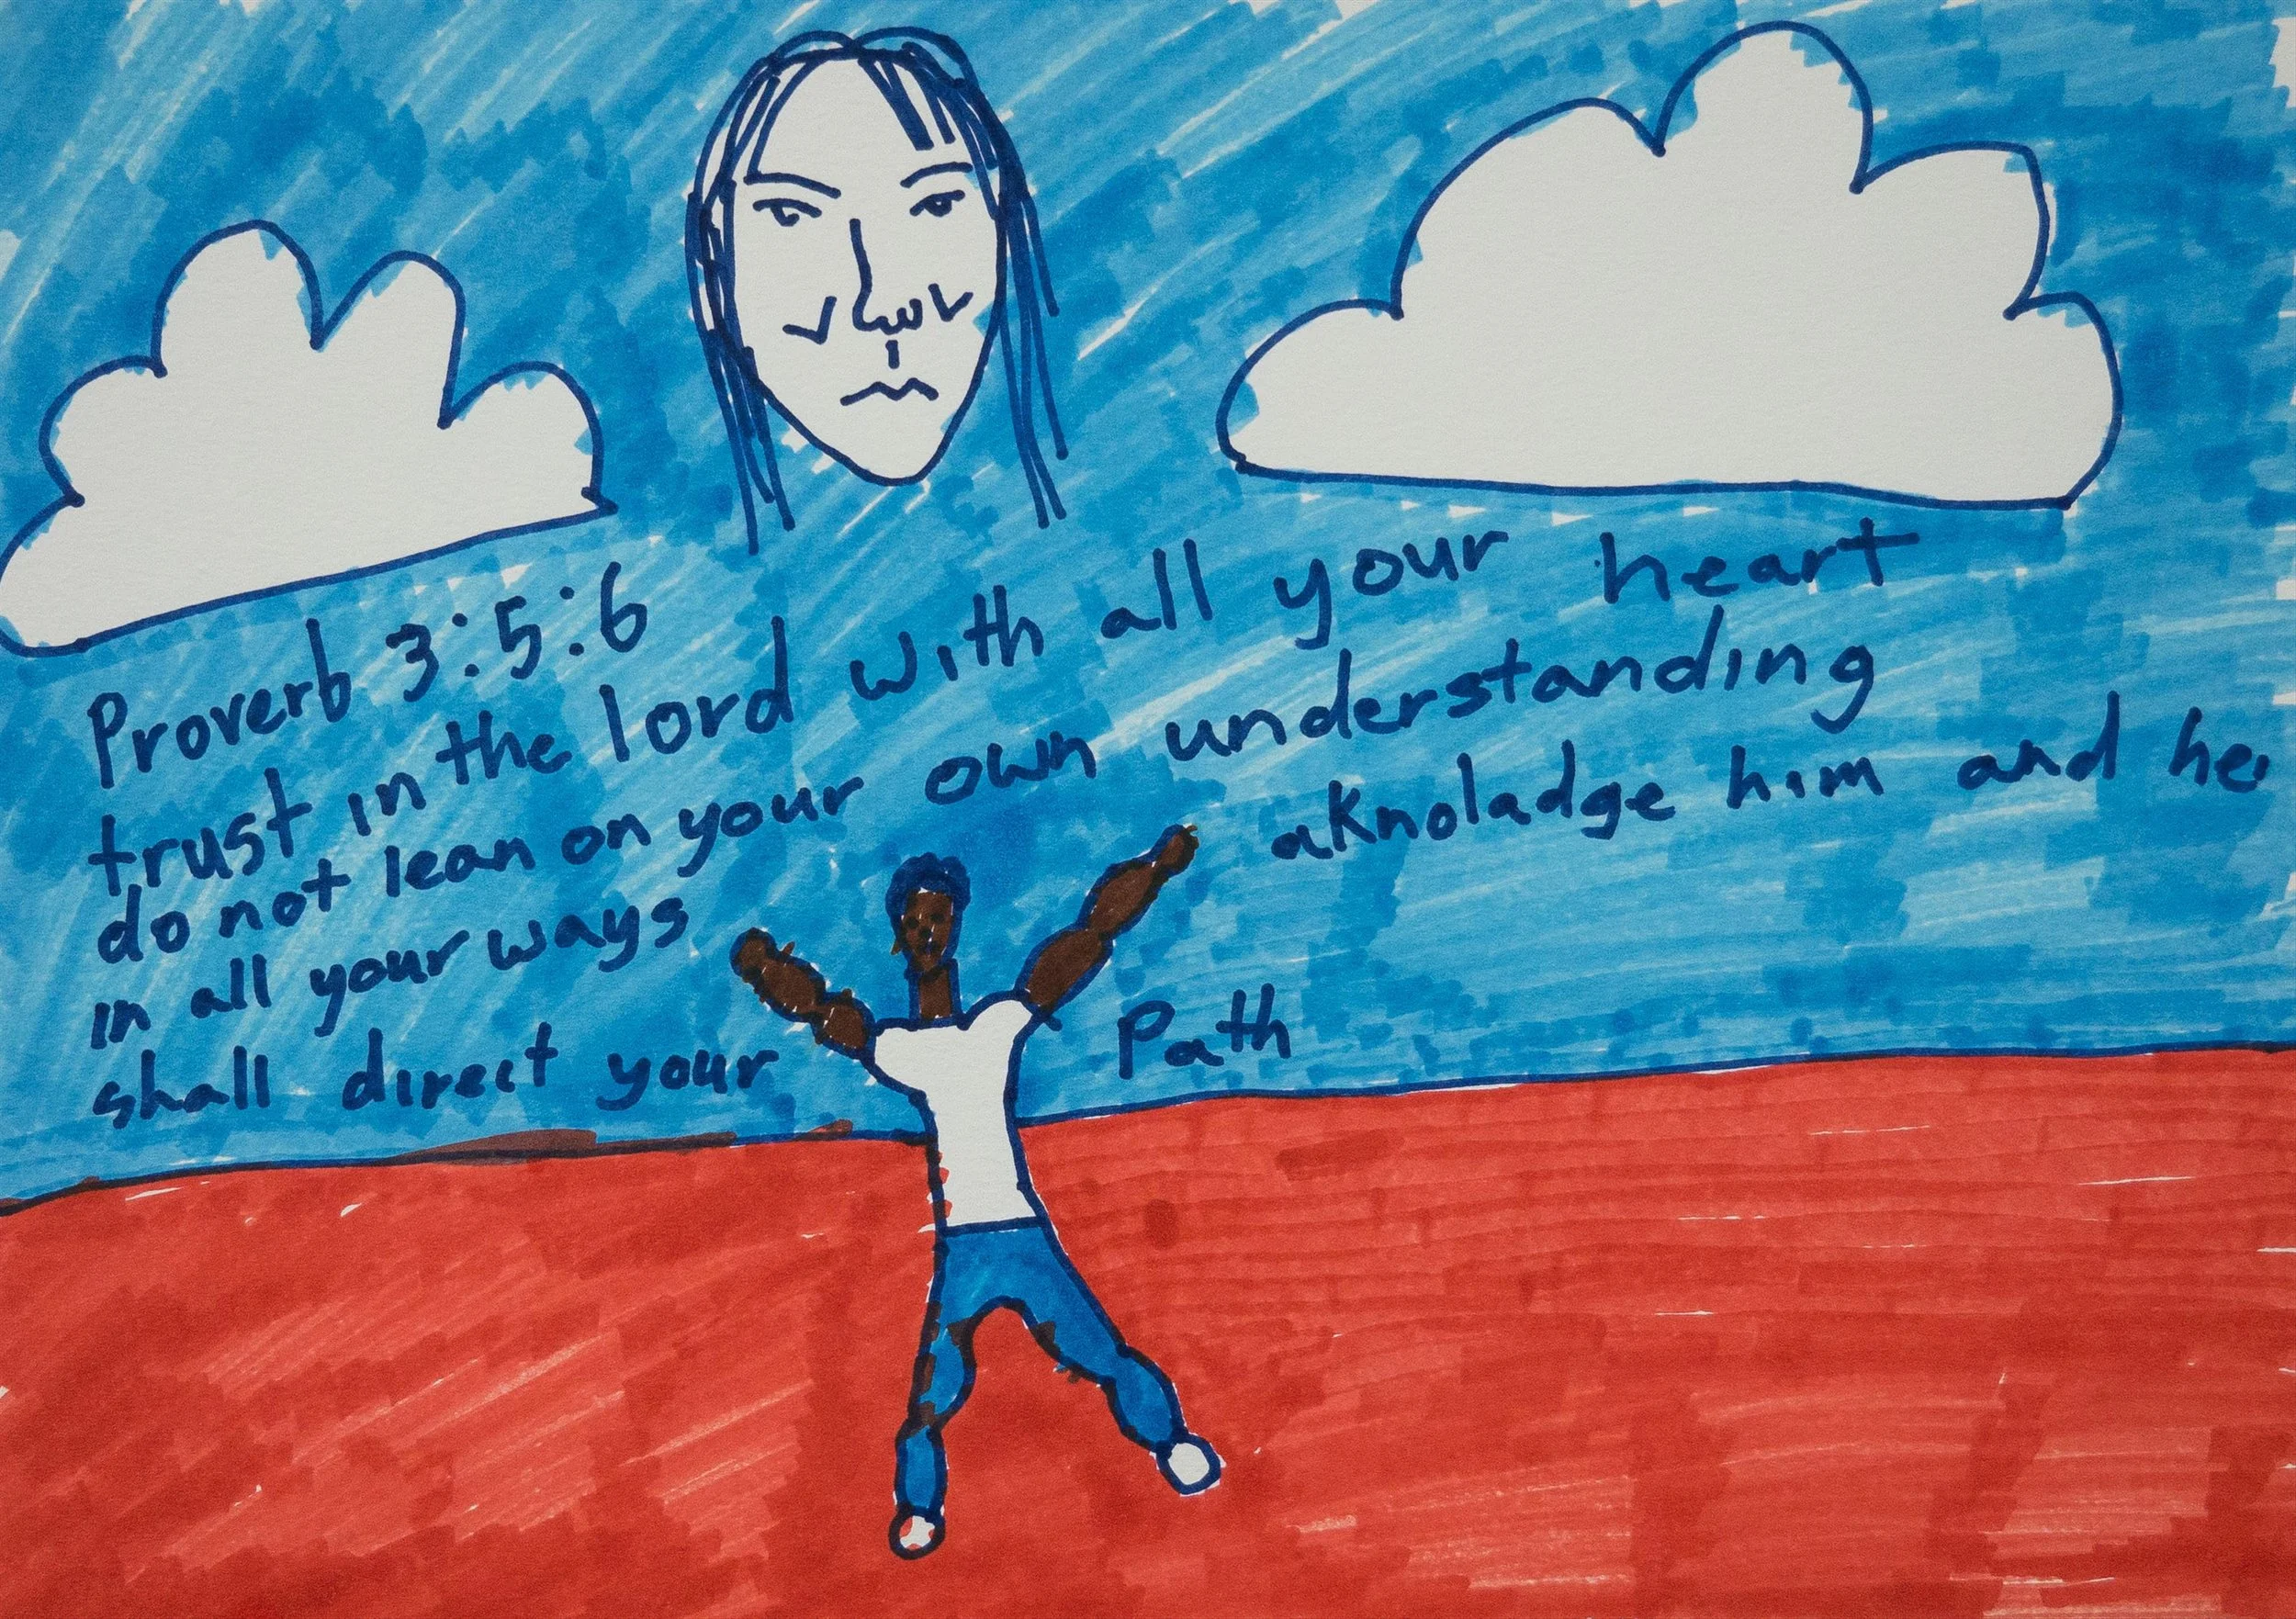 Proverb 3:5:6
trust in the lord with all your heart
do not lean on your own understanding
in all your ways aknoladge him and he
shall direct your Path